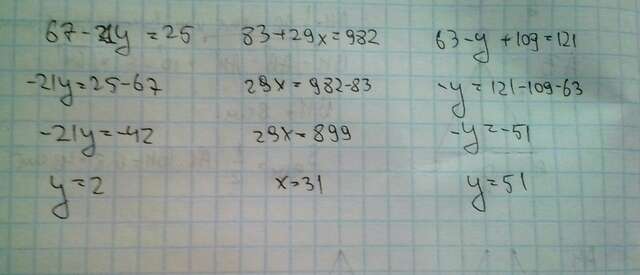 67-21y=25
83+29x=982
63-y+109=121
-21y=25-67
29x=982-83
-y=121-109-63
-21y=-42
29x=899
-y=-51
y=2
x=31
y=51